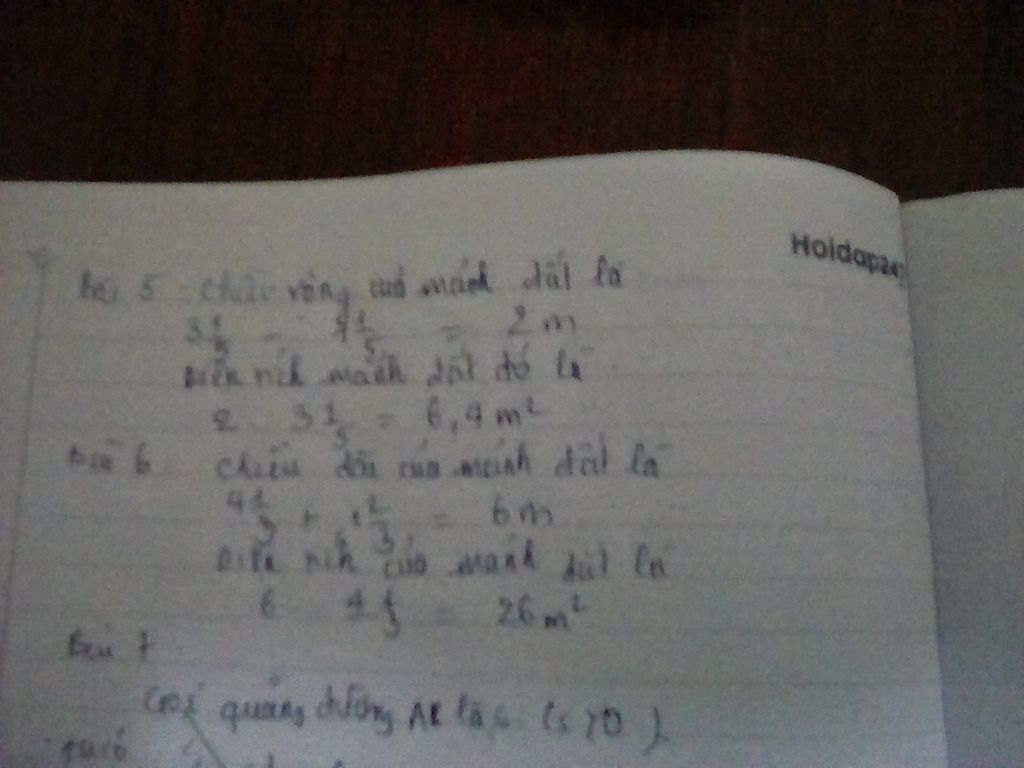 Holdap247
Bài 5 Chiều rộng của mảnh đất là
3 1/5 - 1 1/5 = 2 m
Diện tích mảnh đất đó là
2 3 1/5 = 6,4 m²
Bài 6 chiều dài của mảnh đất là
4 1/3 + 1 2/3 = 6 m
Diện tích của mảnh đất là
6 4 1/3 = 26 m²
Bài 7
Gọi quảng đường AB là s (s > 0).
ta có